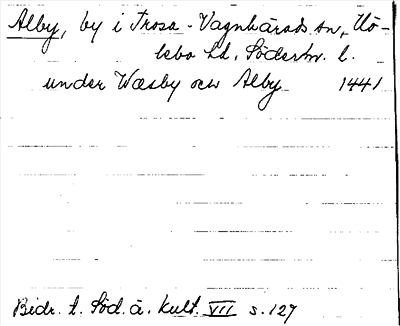 Alby, by i Trosa-Vagnhärads sn, Hö-
lebo hd, Söderm. l.
under Wæsby ocw Alby 1441
Bidr. t. Söd. ä. Kult. VII s. 127